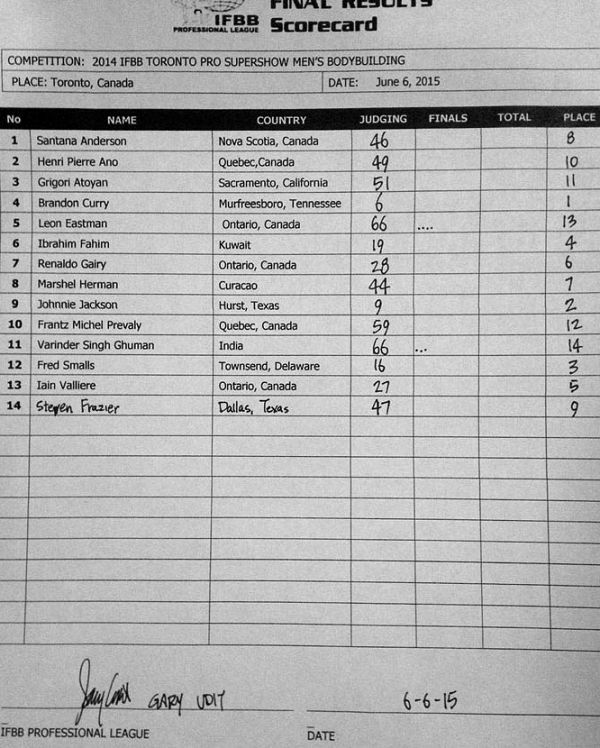 FINAL RESULTS
IFBB
PROFESSIONAL LEAGUE
Scorecard
COMPETITION: 2014 IFBB TORONTO PRO SUPERSHOW MEN'S BODYBUILDING
PLACE: Toronto, Canada DATE: June 6, 2015
No NAME COUNTRY JUDGING FINALS TOTAL PLACE
1 Santana Anderson Nova Scotia, Canada 46 8
2 Henri Pierre Ano Quebec,Canada 49 10
3 Grigori Atoyan Sacramento, California 51 11
4 Brandon Curry Murfreesboro, Tennessee 6 1
5 Leon Eastman Ontario, Canada 66 .... 13
6 Ibrahim Fahim Kuwait 19 4
7 Renaldo Gairy Ontario, Canada 28 6
8 Marshel Herman Curacao 44 7
9 Johnnie Jackson Hurst, Texas 9 2
10 Frantz Michel Prevaly Quebec, Canada 59 12
11 Varinder Singh Ghuman India 66 ... 14
12 Fred Smalls Townsend, Delaware 16 3
13 Iain Valliere Ontario, Canada 27 5
14 Steven Frazier Dallas, Texas 47 9
GARY UDIT 6-6-15
IFBB PROFESSIONAL LEAGUE DATE